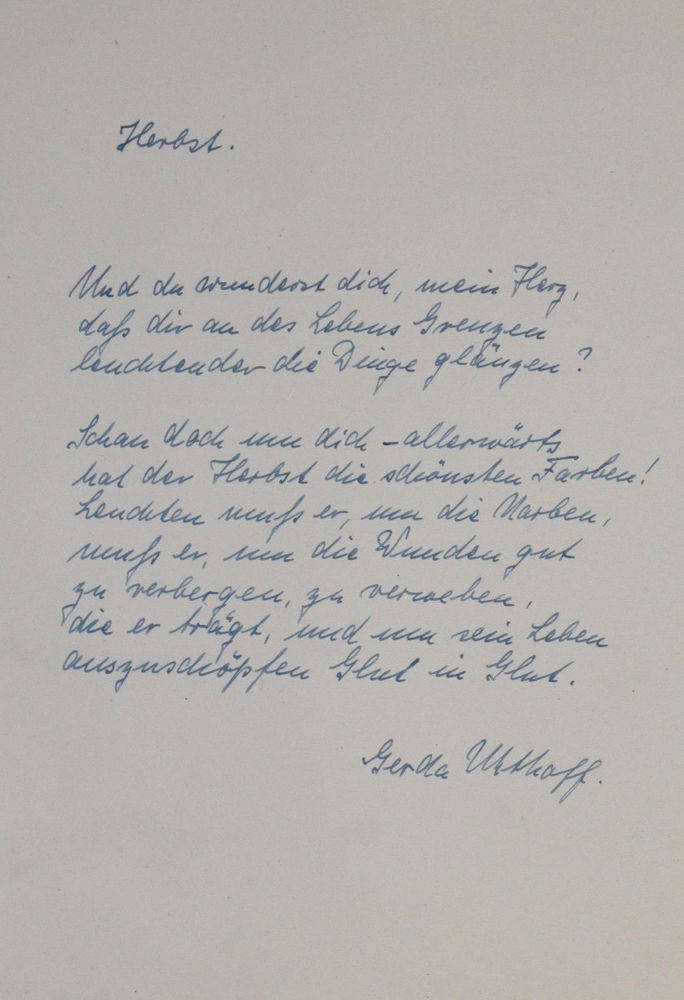 Herbst.
Und du wunderst dich, mein Herz,
daß dir an des Lebens Grenzen
leuchtender die Dinge glänzen?
Schau doch um dich – allerwärts
hat der Herbst die schönsten Farben!
Leuchten muß er, um die Narben,
muß er, um die Wunden gut
zu verbergen, zu verweben,
die er trägt, und um sein Leben
auszuschöpfen Glut in Glut.
Gerda Uhthoff.